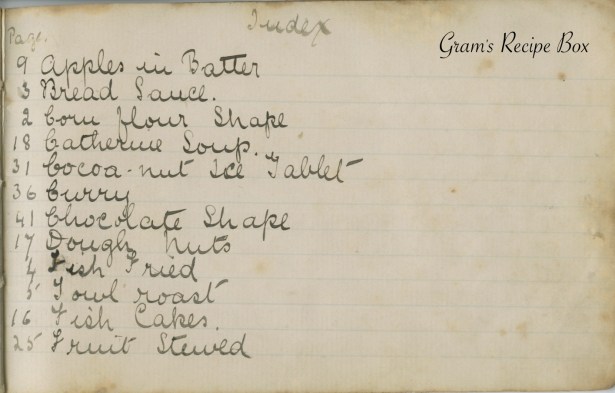 Index
Gram's Recipe Box
Page.
9 Apples in Batter
3 Bread Sauce.
2 Corn flour Shape
18 Catherine Soup.
31 Cocoa-nut Ice Tablet
36 Curry
41 Chocolate Shape
17 Dough Nuts
4 Fish Fried
5 Fowl roast
16 Fish Cakes.
25 Fruit Stewed